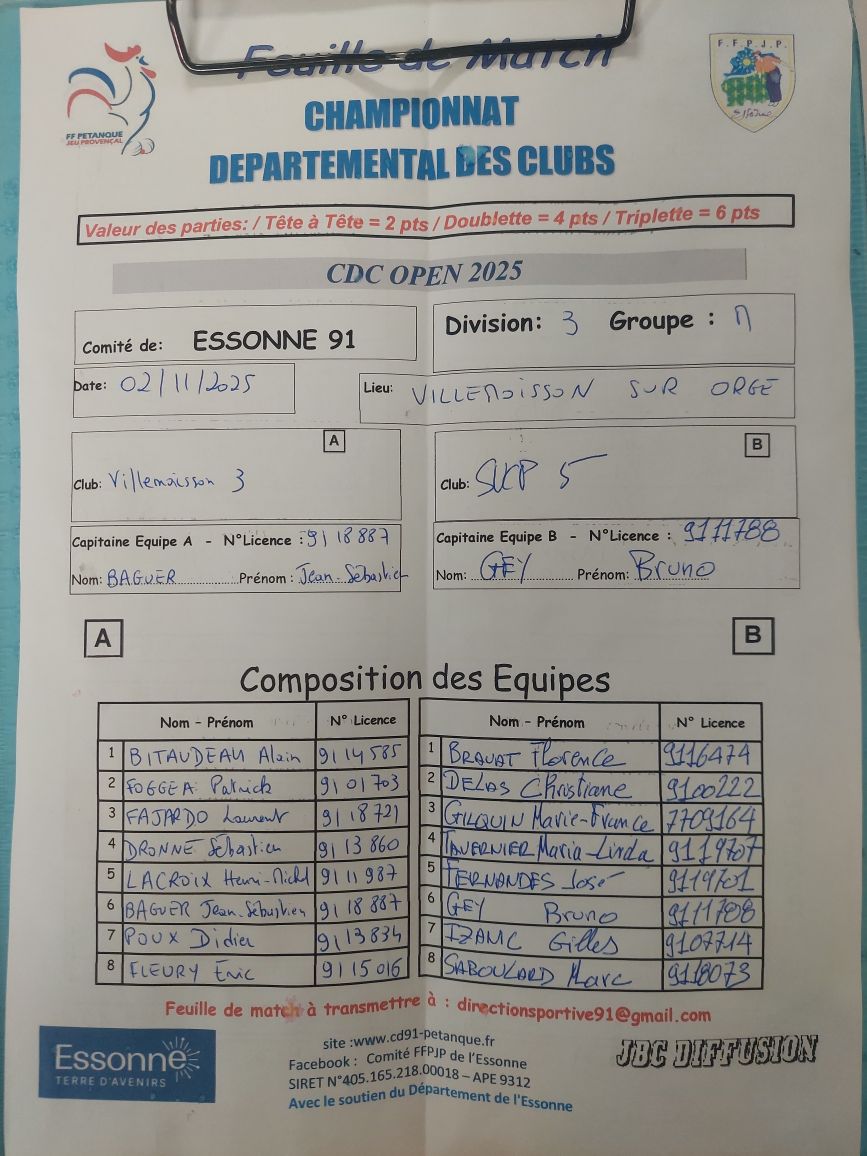 Feuille de Match
FF PETANQUE
JEU PROVENÇAL
F.F.P.J.P.
CHAMPIONNAT
DEPARTEMENTAL DES CLUBS
Valeur des parties: / Tête à Tête = 2 pts / Doublette = 4 pts / Triplette = 6 pts
CDC OPEN 2025
Comité de: ESSONNE 91
Division: 3 Groupe :
Date: 02/11/2025
Lieu: VILLEMOISSON SUR ORGE
A
B
Club: Villemoisson 3
Club: SUCP 5
Capitaine Equipe A - N°Licence : 9118887
Capitaine Equipe B - N°Licence : 9111788
Nom: BAGUER Prénom : Jean-Sébastien
Nom: GEY Prénom: Bruno
A
B
Composition des Equipes
Nom - Prénom N° Licence
Nom - Prénom N° Licence
1 BITAUDEAU Alain 9114585
1 BRAUAT Florence 9116474
2 FOGGEA Patrick 9101703
2 DELAS Christiane 9100222
3 FAJARDO Laurent 9118721
3 GILQUIN Marie-France 7709164
4 DRONNE Sébastien 9113860
4 TAVERNIER Maria-Linda 9119707
5 LACROIX Henri-Michel 9111987
5 FERNANDES José 9119701
6 BAGUER Jean-Sébastien 9118887
6 GEY Bruno 9111788
7 POUX Didier 9113834
7 Gilles 9107714
8 FLEURY Eric 9115016
8 SABOULARD Marc 9118073
Feuille de match à transmettre à : directionsportive91@gmail.com
Essonne
TERRE D'AVENIRS
site :www.cd91-petanque.fr
Facebook : Comité FFPJP de l'Essonne
SIRET N°405.165.218.00018 – APE 9312
Avec le soutien du Département de l'Essonne
JBC DIFFUSION